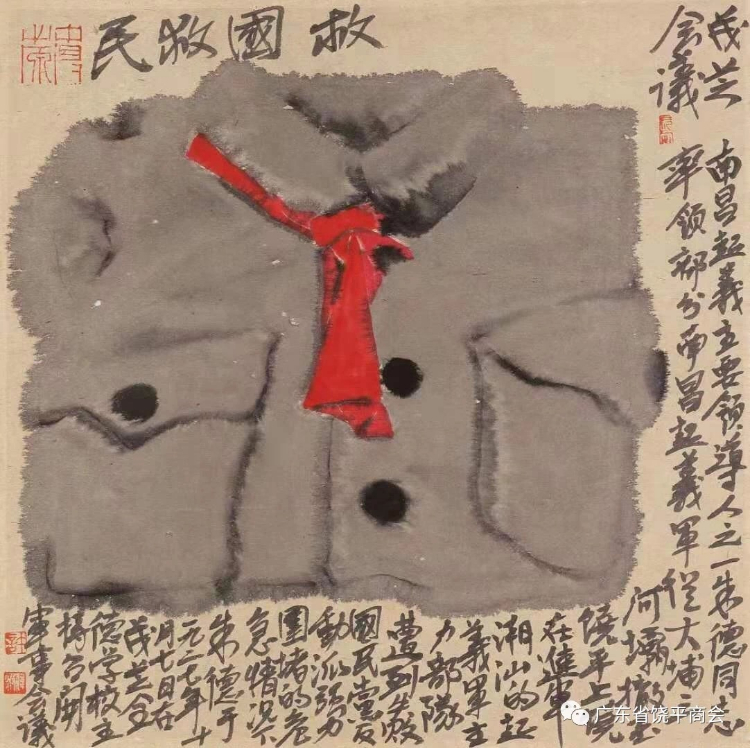 救國救民
茂芝
会議
南昌起義主要领導人之一朱德同志
率领部分南昌起義軍從大埔
河壩撤至
饒平上饒
在進軍
潮汕的起
義軍主
力部隊
遭到失敗
國民黨反
動派强力
圍堵的危
急情况下
朱德于
一九二七年十
月七日在
茂芝全
德学校主
持召開
軍事会議
广东省饶平商会